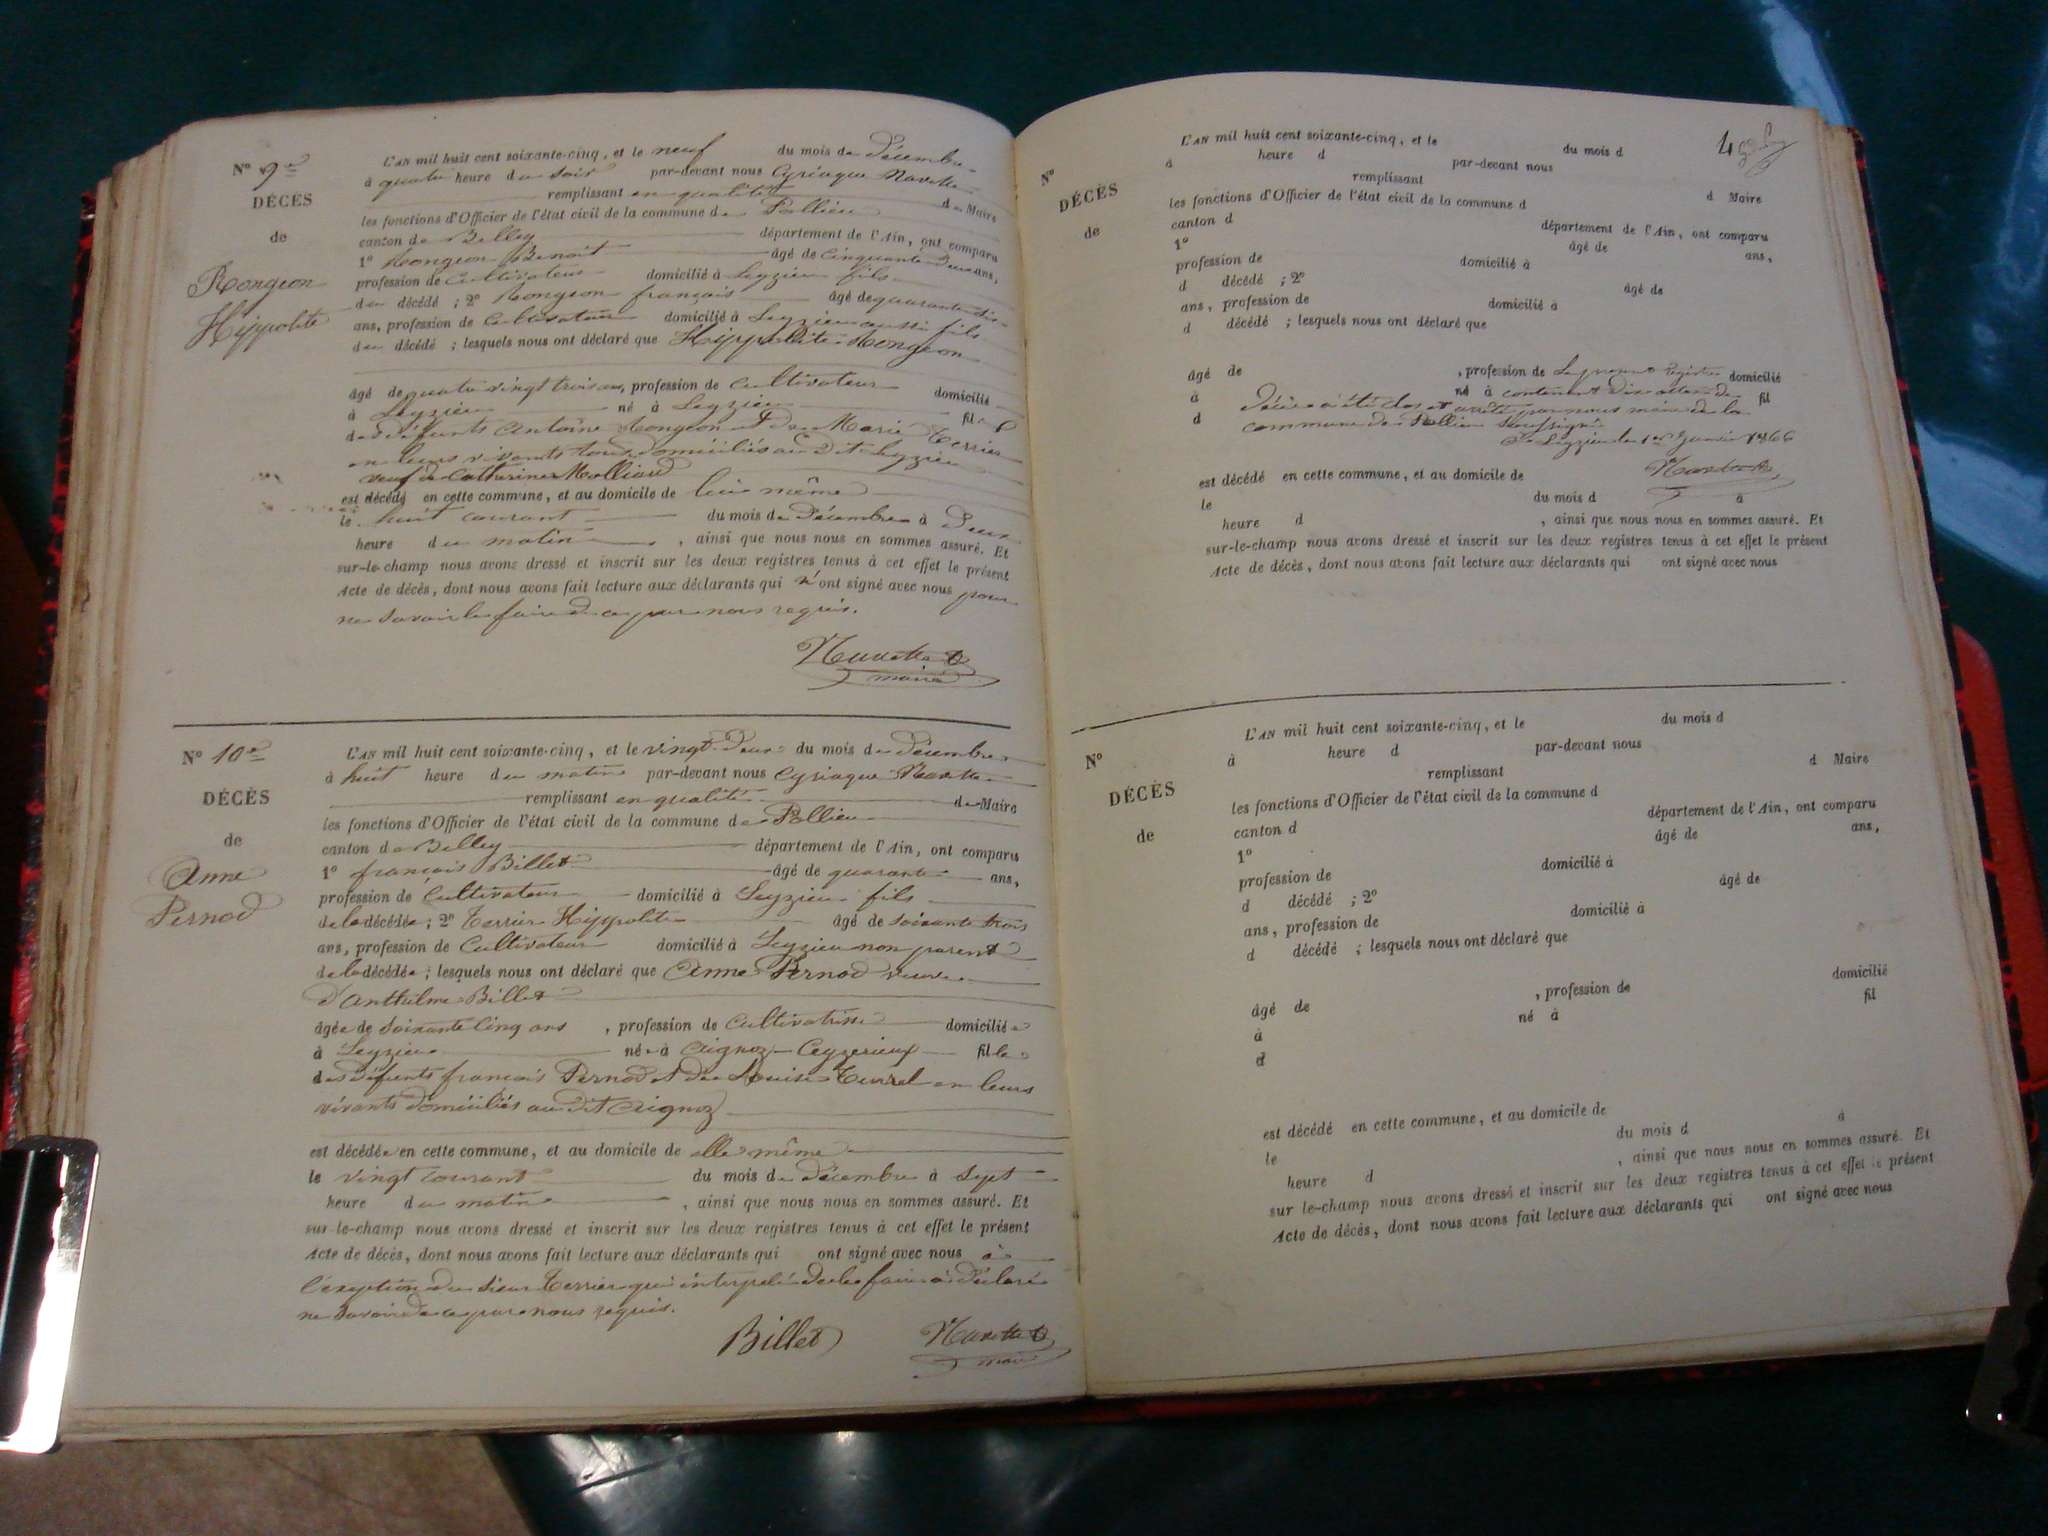 N° 9me
DÉCÈS
de
Rongeon
Hippolite
L'AN mil huit cent soixante-cinq, et le neuf du mois de Décembre
à quatre heure du soir par-devant nous Cyriaque Navette
remplissant en qualité de Maire
les fonctions d'Officier de l'état civil de la commune de Pollieu
canton de Belley département de l'Ain, ont comparu
1° Rongeon Benoit âgé de Cinquante Deux ans,
profession de Cultivateur domicilié à Leyzieu fils
du décédé ; 2° Rongeon françois âgé de quarante six
ans, profession de Cultivateur domicilié à Leyzieu aussi fils
du décédé ; lesquels nous ont déclaré que Hippolite Rongeon
âgé de quatre vingt trois ans, profession de Cultivateur domicilié
à Leyzieu né à Leyzieu fils
des défunts Antoine Rongeon et de Marie Terrier
en leurs vivants tous domiciliés au Dit Leyzieu
veuf de Catherine Molliard
est décédé en cette commune, et au domicile de lui même
le huit courant du mois de Décembre à Deux
heure du matin , ainsi que nous nous en sommes assuré. Et
sur-le-champ nous avons dressé et inscrit sur les deux registres tenus à cet effet le présent
Acte de décès, dont nous avons fait lecture aux déclarants qui n'ont signé avec nous pour
ne savoir le faire de ce par nous requis.
Navette
maire
N° 10me
DÉCÈS
de
Anne
Pernod
L'AN mil huit cent soixante-cinq, et le vingt-Deux du mois de Décembre
à huit heure du matin par-devant nous Cyriaque Navette
remplissant en qualité de Maire
les fonctions d'Officier de l'état civil de la commune de Pollieu
canton de Belley département de l'Ain, ont comparu
1° françois Billet âgé de quarante ans,
profession de Cultivateur domicilié à Leyzieu fils
de la décédée ; 2° Terrier Hippolite âgé de soixante trois
ans, profession de Cultivateur domicilié à Leyzieu non parent
de la décédée ; lesquels nous ont déclaré que Anne Pernod veuve
d'Anthelme Billet
âgée de soixante Cinq ans , profession de Cultivatrice domiciliée
à Leyzieu née à Aignoz Ceyzerieux fille
des défunts françois Pernod et de Louise Turrel en leurs
vivants domiciliés au dit Aignoz
est décédée en cette commune, et au domicile de elle même
le vingt courant du mois de Décembre à Sept
heure du matin , ainsi que nous nous en sommes assuré. Et
sur-le-champ nous avons dressé et inscrit sur les deux registres tenus à cet effet le présent
Acte de décès, dont nous avons fait lecture aux déclarants qui ont signé avec nous à
l'exeption du sieur Terrier qui interpelé de le faire a déclaré
ne savoir de ce par nous requis.
Billet Navette
maire
4
N°
DÉCÈS
de
L'AN mil huit cent soixante-cinq, et le du mois d
à heure d par-devant nous
remplissant d Maire
les fonctions d'Officier de l'état civil de la commune d
canton d département de l'Ain, ont comparu
1° âgé de ans,
profession de domicilié à
d décédé ; 2° âgé de
ans, profession de domicilié à
d décédé ; lesquels nous ont déclaré que
âgé de , profession de Le présent registre domicilié
à né à contenant dix actes de fil
d Décès a été clos et arrêté par nous maire de la
commune de Pollieu soussigné
à Leyzieu le 1er Janvier 1866
Navette
est décédé en cette commune, et au domicile de
le du mois d à
heure d , ainsi que nous nous en sommes assuré. Et
sur-le-champ nous avons dressé et inscrit sur les deux registres tenus à cet effet le présent
Acte de décès, dont nous avons fait lecture aux déclarants qui ont signé avec nous
N°
DÉCÈS
de
L'AN mil huit cent soixante-cinq, et le du mois d
à heure d par-devant nous
remplissant d Maire
les fonctions d'Officier de l'état civil de la commune d
canton d département de l'Ain, ont comparu
1° âgé de ans,
profession de domicilié à
d décédé ; 2° âgé de
ans, profession de domicilié à
d décédé ; lesquels nous ont déclaré que
âgé de , profession de domicilié
à né à fil
d
est décédé en cette commune, et au domicile de
le du mois d à
heure d , ainsi que nous nous en sommes assuré. Et
sur-le-champ nous avons dressé et inscrit sur les deux registres tenus à cet effet le présent
Acte de décès, dont nous avons fait lecture aux déclarants qui ont signé avec nous